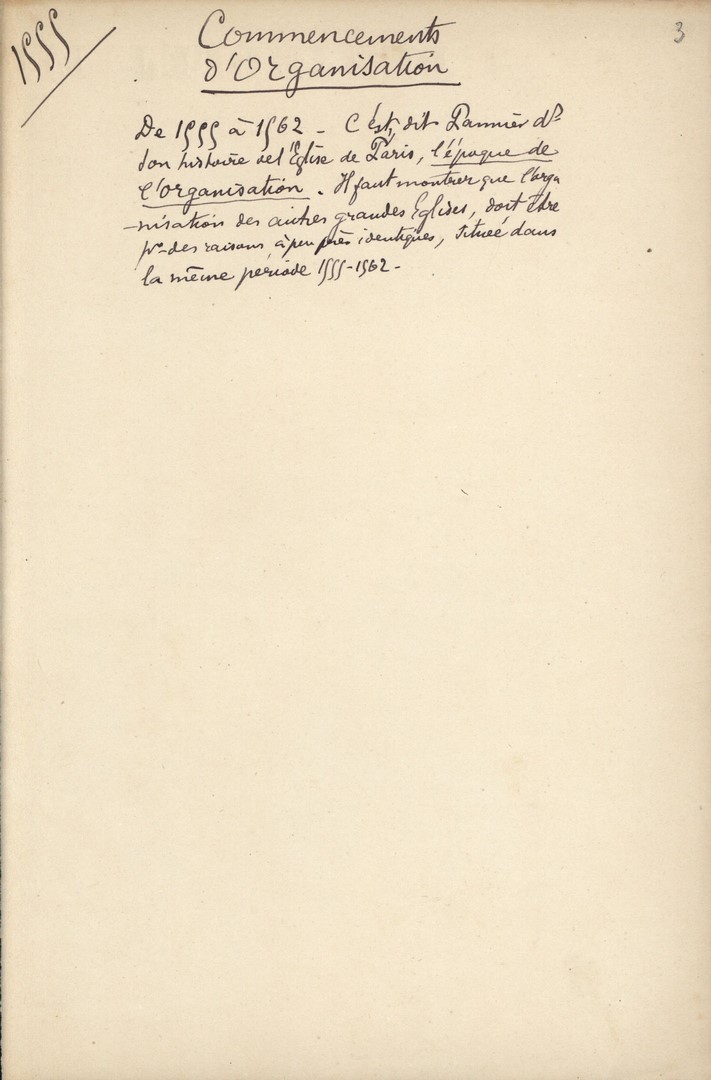 1555
3
Commencements
d'Organisation
De 1555 à 1562 - C'est, dit Pannier ds
son histoire de l'Eglise de Paris, l'époque de
l'Organisation. Il faut montrer que l'orga
-nisation des autres grandes Eglises, doit être
pr des raisons à peu près identiques, située dans
la même période 1555-1562 -